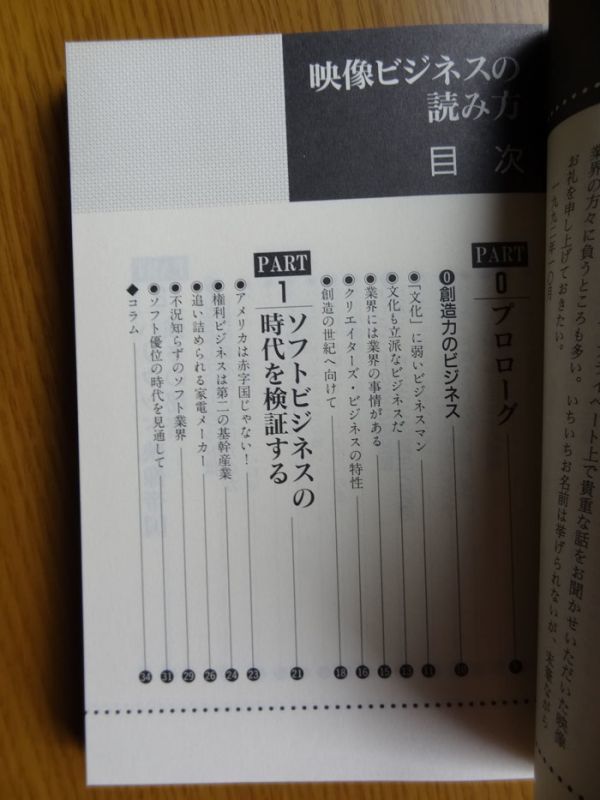 業界の方々に負うところも多い。
ベート上で貴重な話をお聞かせいただいた映像
お礼を申し上げておきたい。いちいちお名前は挙げられないが、失礼ながら
一九九二年一〇月
映像ビジネスの
読み方
目次
PART
0 プロローグ
0 創造力のビジネス 10
●「文化」に弱いビジネスマン 11
●文化も立派なビジネスだ 13
●業界には業界の事情がある 15
●クリエイターズ・ビジネスの特性 16
●創造の世紀へ向けて 18
PART
1 ソフトビジネスの
時代を検証する 21
●アメリカは赤字国じゃない! 23
●権利ビジネスは第二の基幹産業 24
●追い詰められる家電メーカー 26
●不況知らずのソフト業界 29
●ソフト優位の時代を見通して 31
◆コラム 34